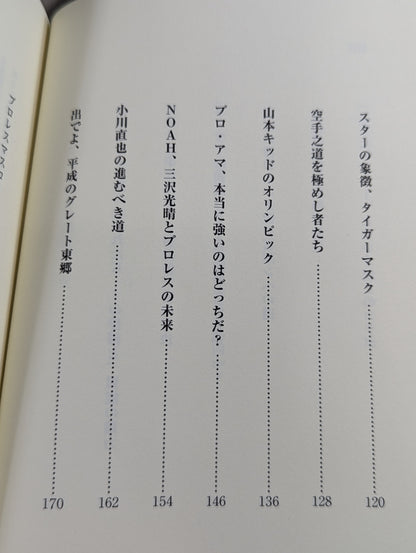 スターの象徴、タイガーマスク……………………120
空手之道を極めし者たち……………………128
山本キッドのオリンピック……………………136
プロ・アマ、本当に強いのはどっちだ？……………………146
NOAH、三沢光晴とプロレスの未来……………………154
小川直也の進むべき道……………………162
出でよ、平成のグレート東郷……………………170
プロレスマスク